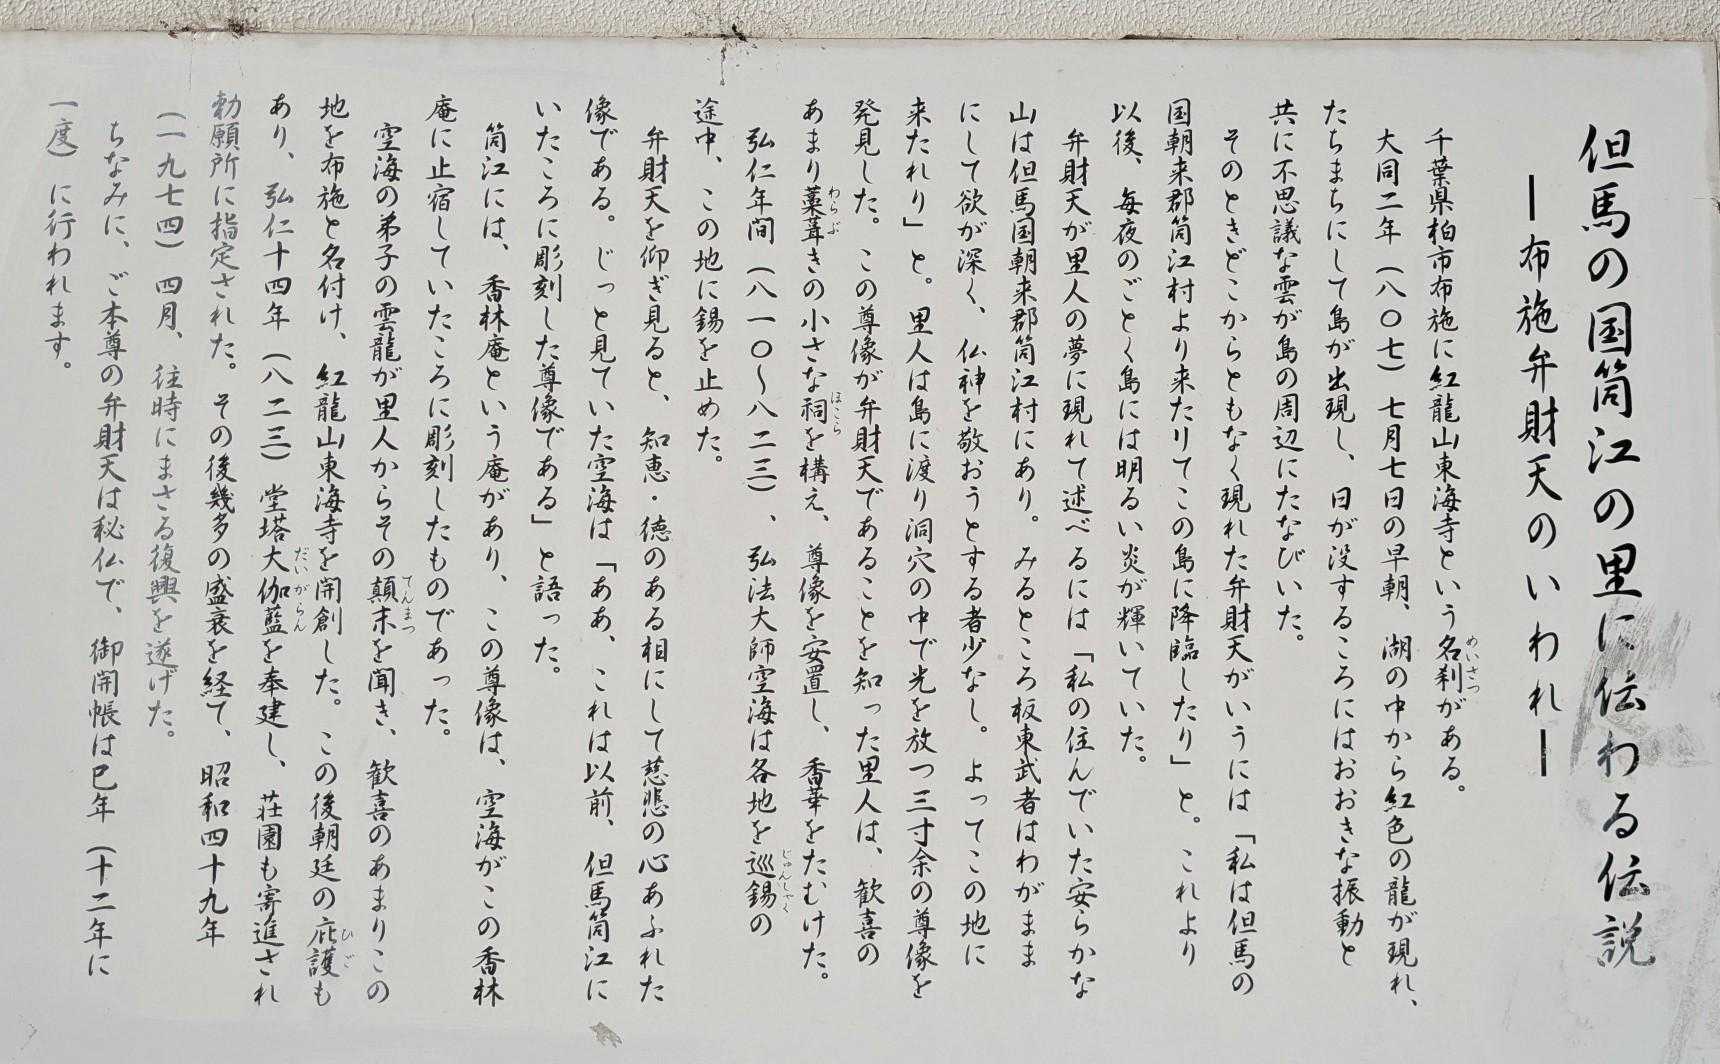 但馬の国筒江の里に伝わる伝説
―布施弁財天のいわれ―
千葉県柏市布施に紅龍山東海寺という名刹がある。
めいさつ
大同二年（八〇七）七月七日の早朝、湖の中から紅色の龍が現れ、
たちまちにして島が出現し、日が没するころにはおおきな振動と
共に不思議な雲が島の周辺にたなびいた。
そのときどこからともなく現れた弁財天がいうには「私は但馬の
国朝来郡筒江村より来たりてこの島に降臨したり」と。これより
以後、毎夜のごとく島には明るい炎が輝いていた。
弁財天が里人の夢に現れて述べるには「私の住んでいた安らかな
山は但馬国朝来郡筒江村にあり。みるところ板東武者はわがまま
にして欲が深く、仏神を敬おうとする者少なし。よってこの地に
来たれり」と。里人は島に渡り洞穴の中で光を放つ三寸余の尊像を
発見した。この尊像が弁財天であることを知った里人は、歓喜の
あまり藁葺きの小さな祠を構え、尊像を安置し、香華をたむけた。
わらぶ
ほこら
弘仁年間（八一〇〜八二三）、弘法大師空海は各地を巡錫の
じゅんしゃく
途中、この地に錫を止めた。
弁財天を仰ぎ見ると、知恵・徳のある相にして慈悲の心あふれた
像である。じっと見ていた空海は「ああ、これは以前、但馬筒江に
いたころに彫刻した尊像である」と語った。
筒江には、香林庵という庵があり、この尊像は、空海がこの香林
庵に止宿していたころに彫刻したものであった。
空海の弟子の雲龍が里人からその顛末を聞き、歓喜のあまりこの
てんまつ
地を布施と名付け、紅龍山東海寺を開創した。この後朝廷の庇護も
ひご
あり、弘仁十四年（八二三）堂塔大伽藍を奉建し、荘園も寄進され
だいがらん
勅願所に指定された。その後幾多の盛衰を経て、昭和四十九年
（一九七四）四月、往時にまさる復興を遂げた。
ちなみに、ご本尊の弁財天は秘仏で、御開帳は巳年（十二年に
一度）に行われます。